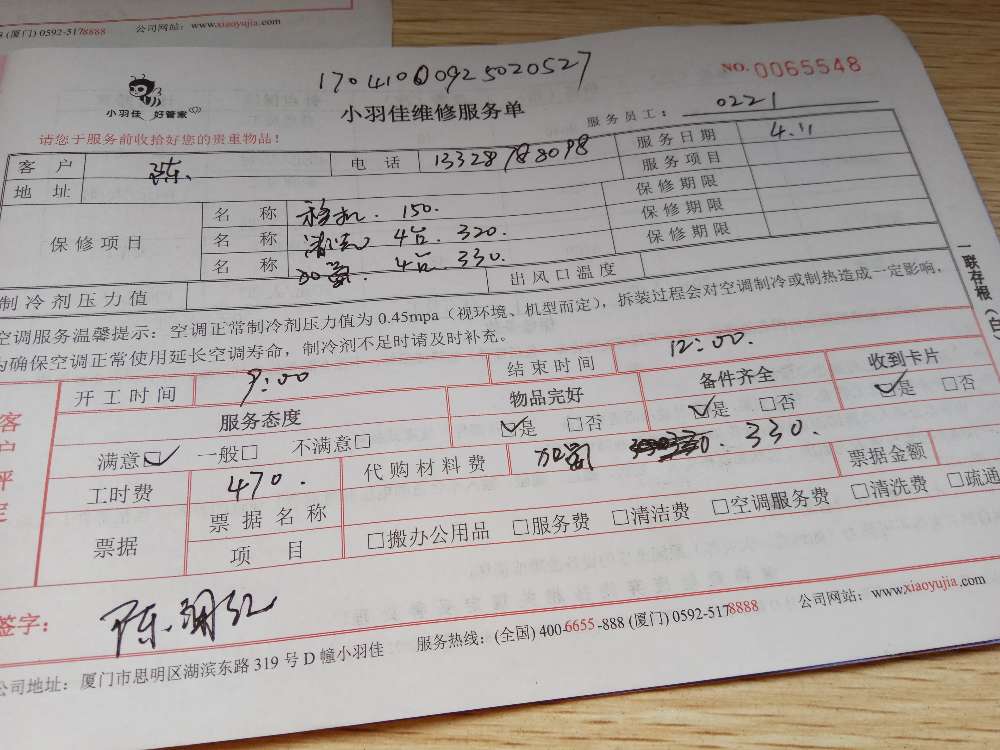 (厦门) 0592-5178888 公司网站：www.xiaoyujia.com
17041000925020527
NO.0065548
小羽佳 好管家
小羽佳维修服务单
服务员工： 0221
请您于服务前收拾好您的贵重物品！
客 户 陈. 电 话 13328788098 服务日期 4.11
地 址 服务项目
保修项目 名 称 移机. 150. 保修期限
名 称 清洗 4台. 320. 保修期限
名 称 加氟. 4台. 330. 保修期限
制冷剂压力值 出风口温度
空调服务温馨提示：空调正常制冷剂压力值为 0.45mpa（视环境、机型而定），拆装过程会对空调制冷或制热造成一定影响，
为确保空调正常使用延长空调寿命，制冷剂不足时请及时补充。
一联存根（白）
客户评定
开工时间 9:00 结束时间 12:00.
服务态度 物品完好 备件齐全 收到卡片
满意☑ 一般□ 不满意□ ☑是 □否 ☑是 □否 ☑是 □否
工时费 470. 代购材料费 加氟 330. 票据金额
票据 票据名称 □搬办公用品 □服务费 □清洁费 □空调服务费 □清洗费 □疏通
项 目
签字：
公司地址：厦门市思明区湖滨东路 319 号 D 幢小羽佳 服务热线：(全国) 400-6655-888 (厦门) 0592-5178888 公司网站：www.xiaoyujia.com